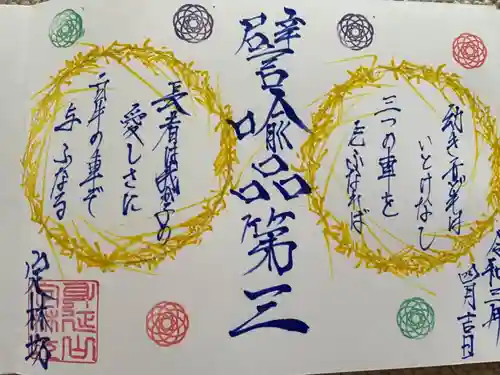 令和三年
四月吉日
幼き
いとけなし
三つの車を
乞ふなれば
譬喩品第三
長者は我が子の
愛しさに
牛の車で
与ふなる
定林坊
身延山
定林坊